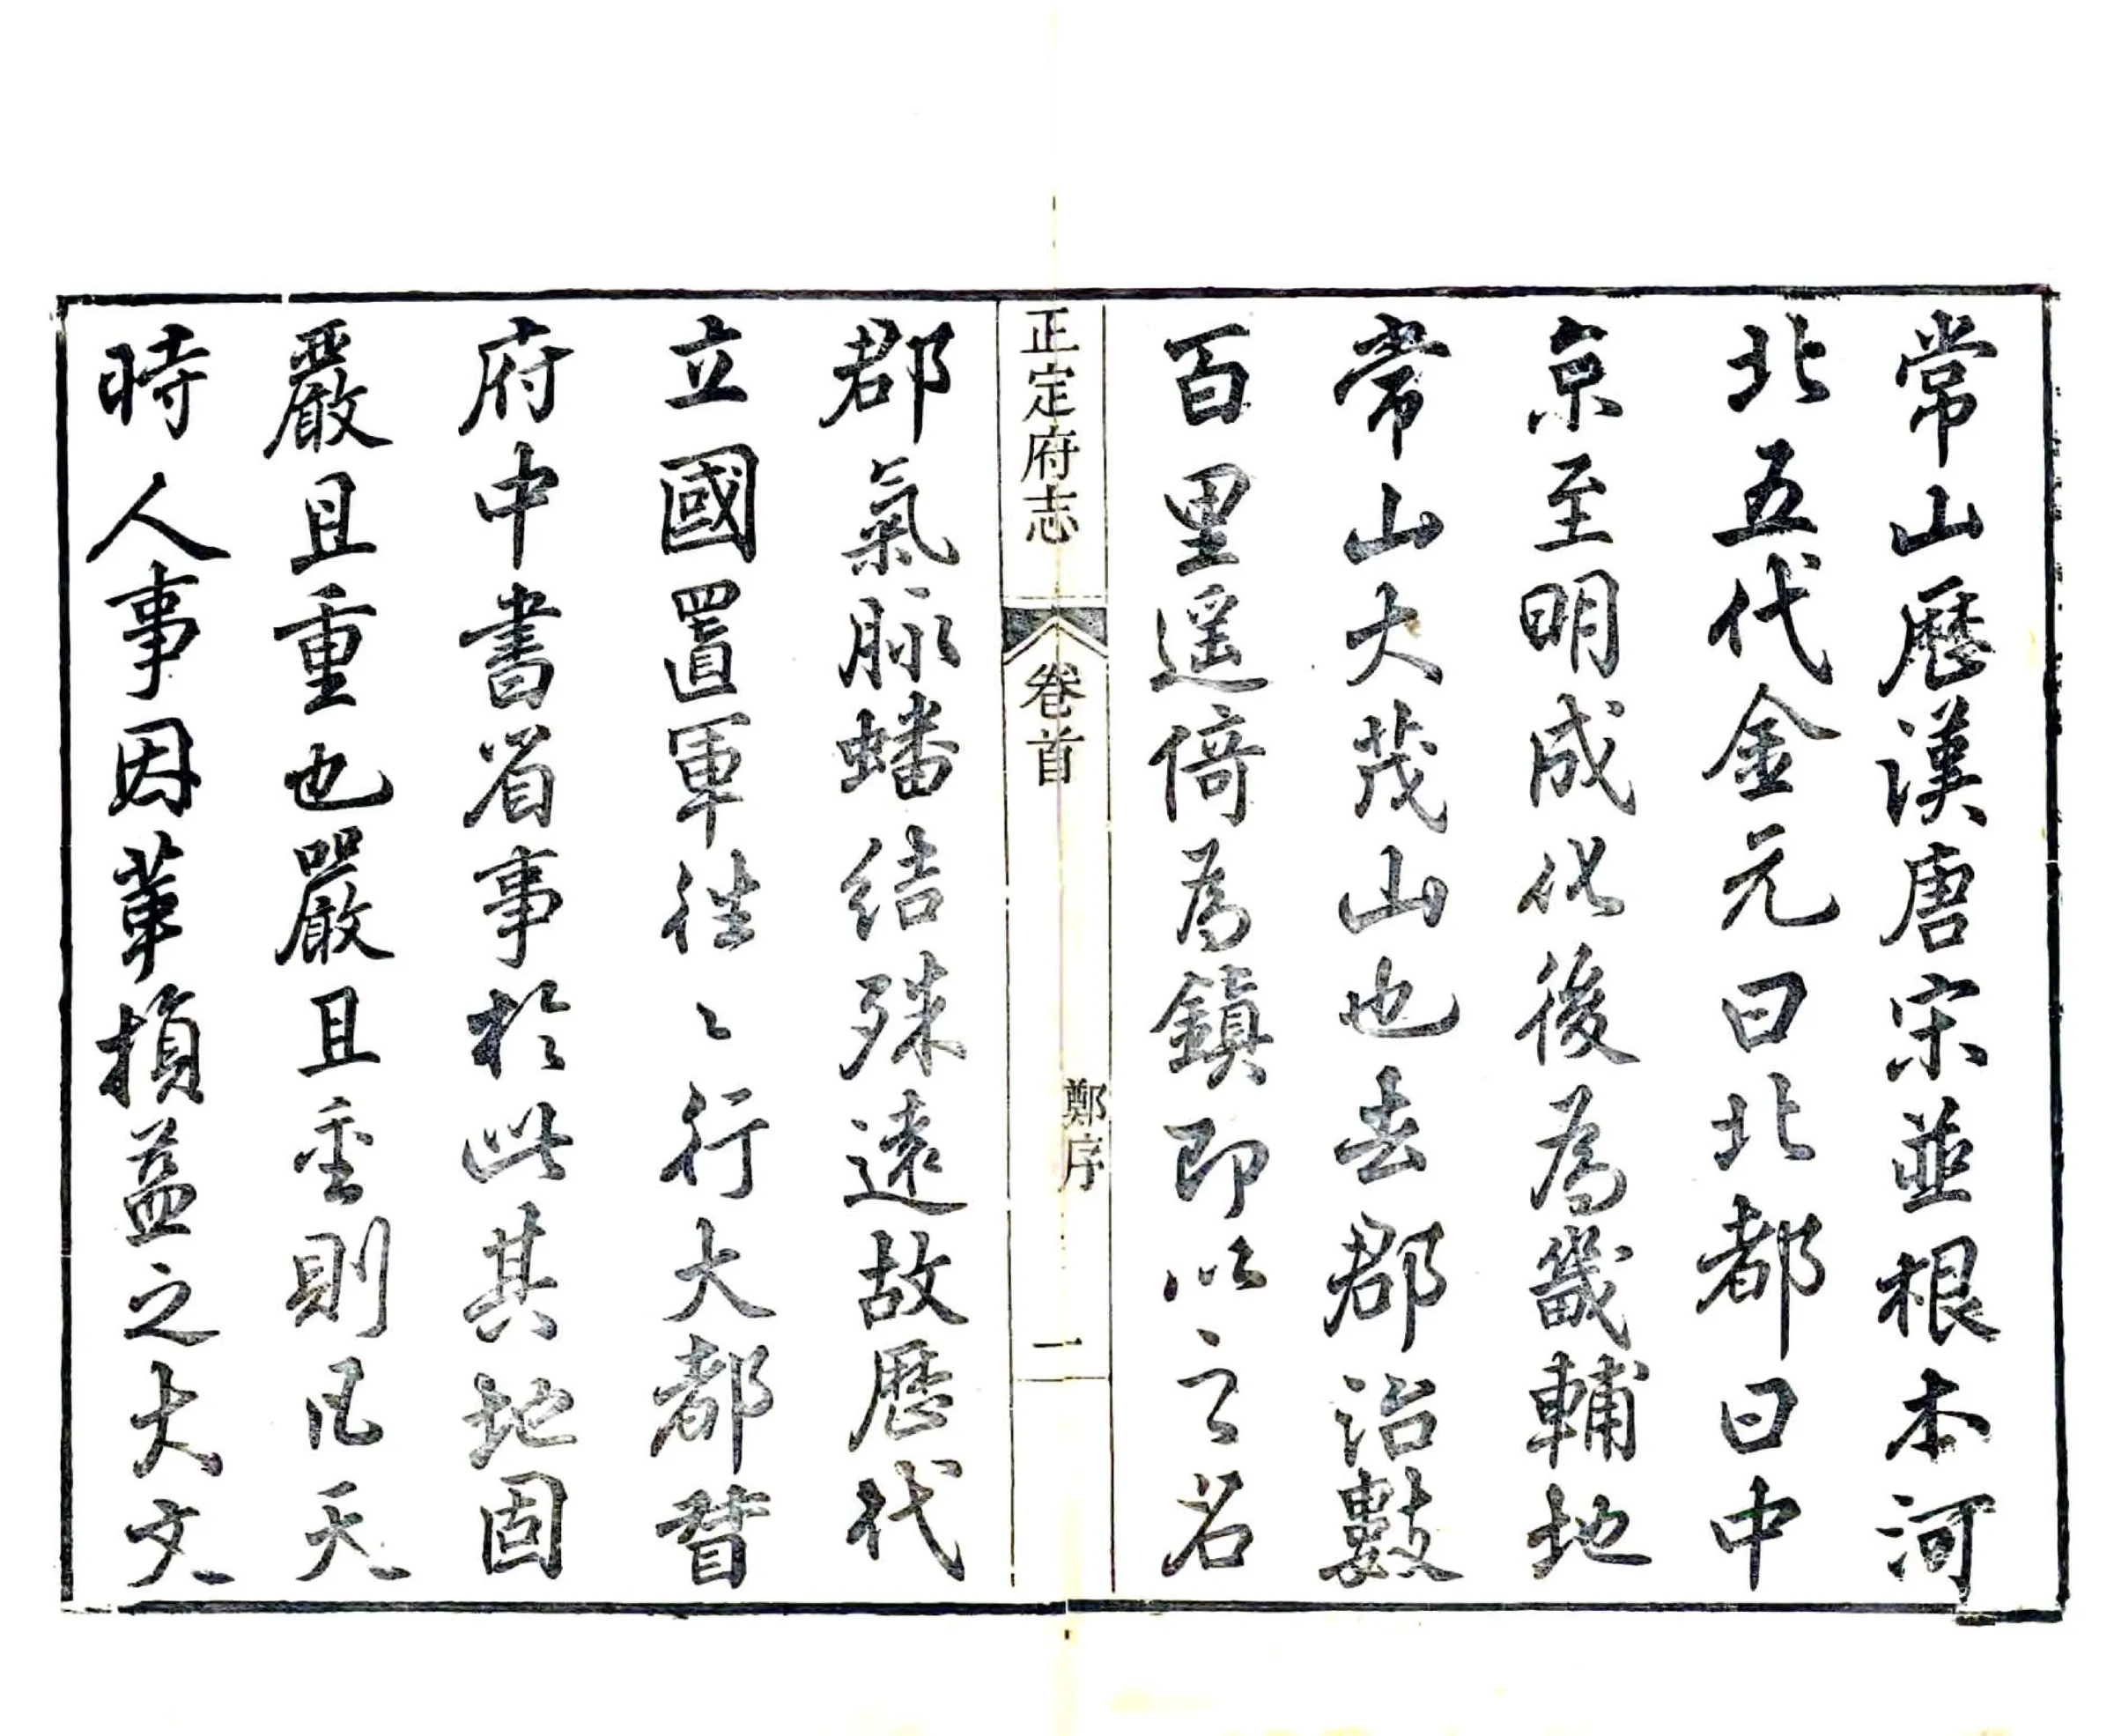 常山歷漢唐宋並根本河
北五代金元曰北都曰中
京至明成化後為畿輔地
常山大茂山也去郡治數
百里遥倚為鎮即以之名
正定府志 卷首 鄭序 二
郡氣脉蟠結殊遠故歷代
立國置軍往〻行大都督
府中書省事於此其地固
嚴且重也嚴且重則凡天
時人事因革損益之大文